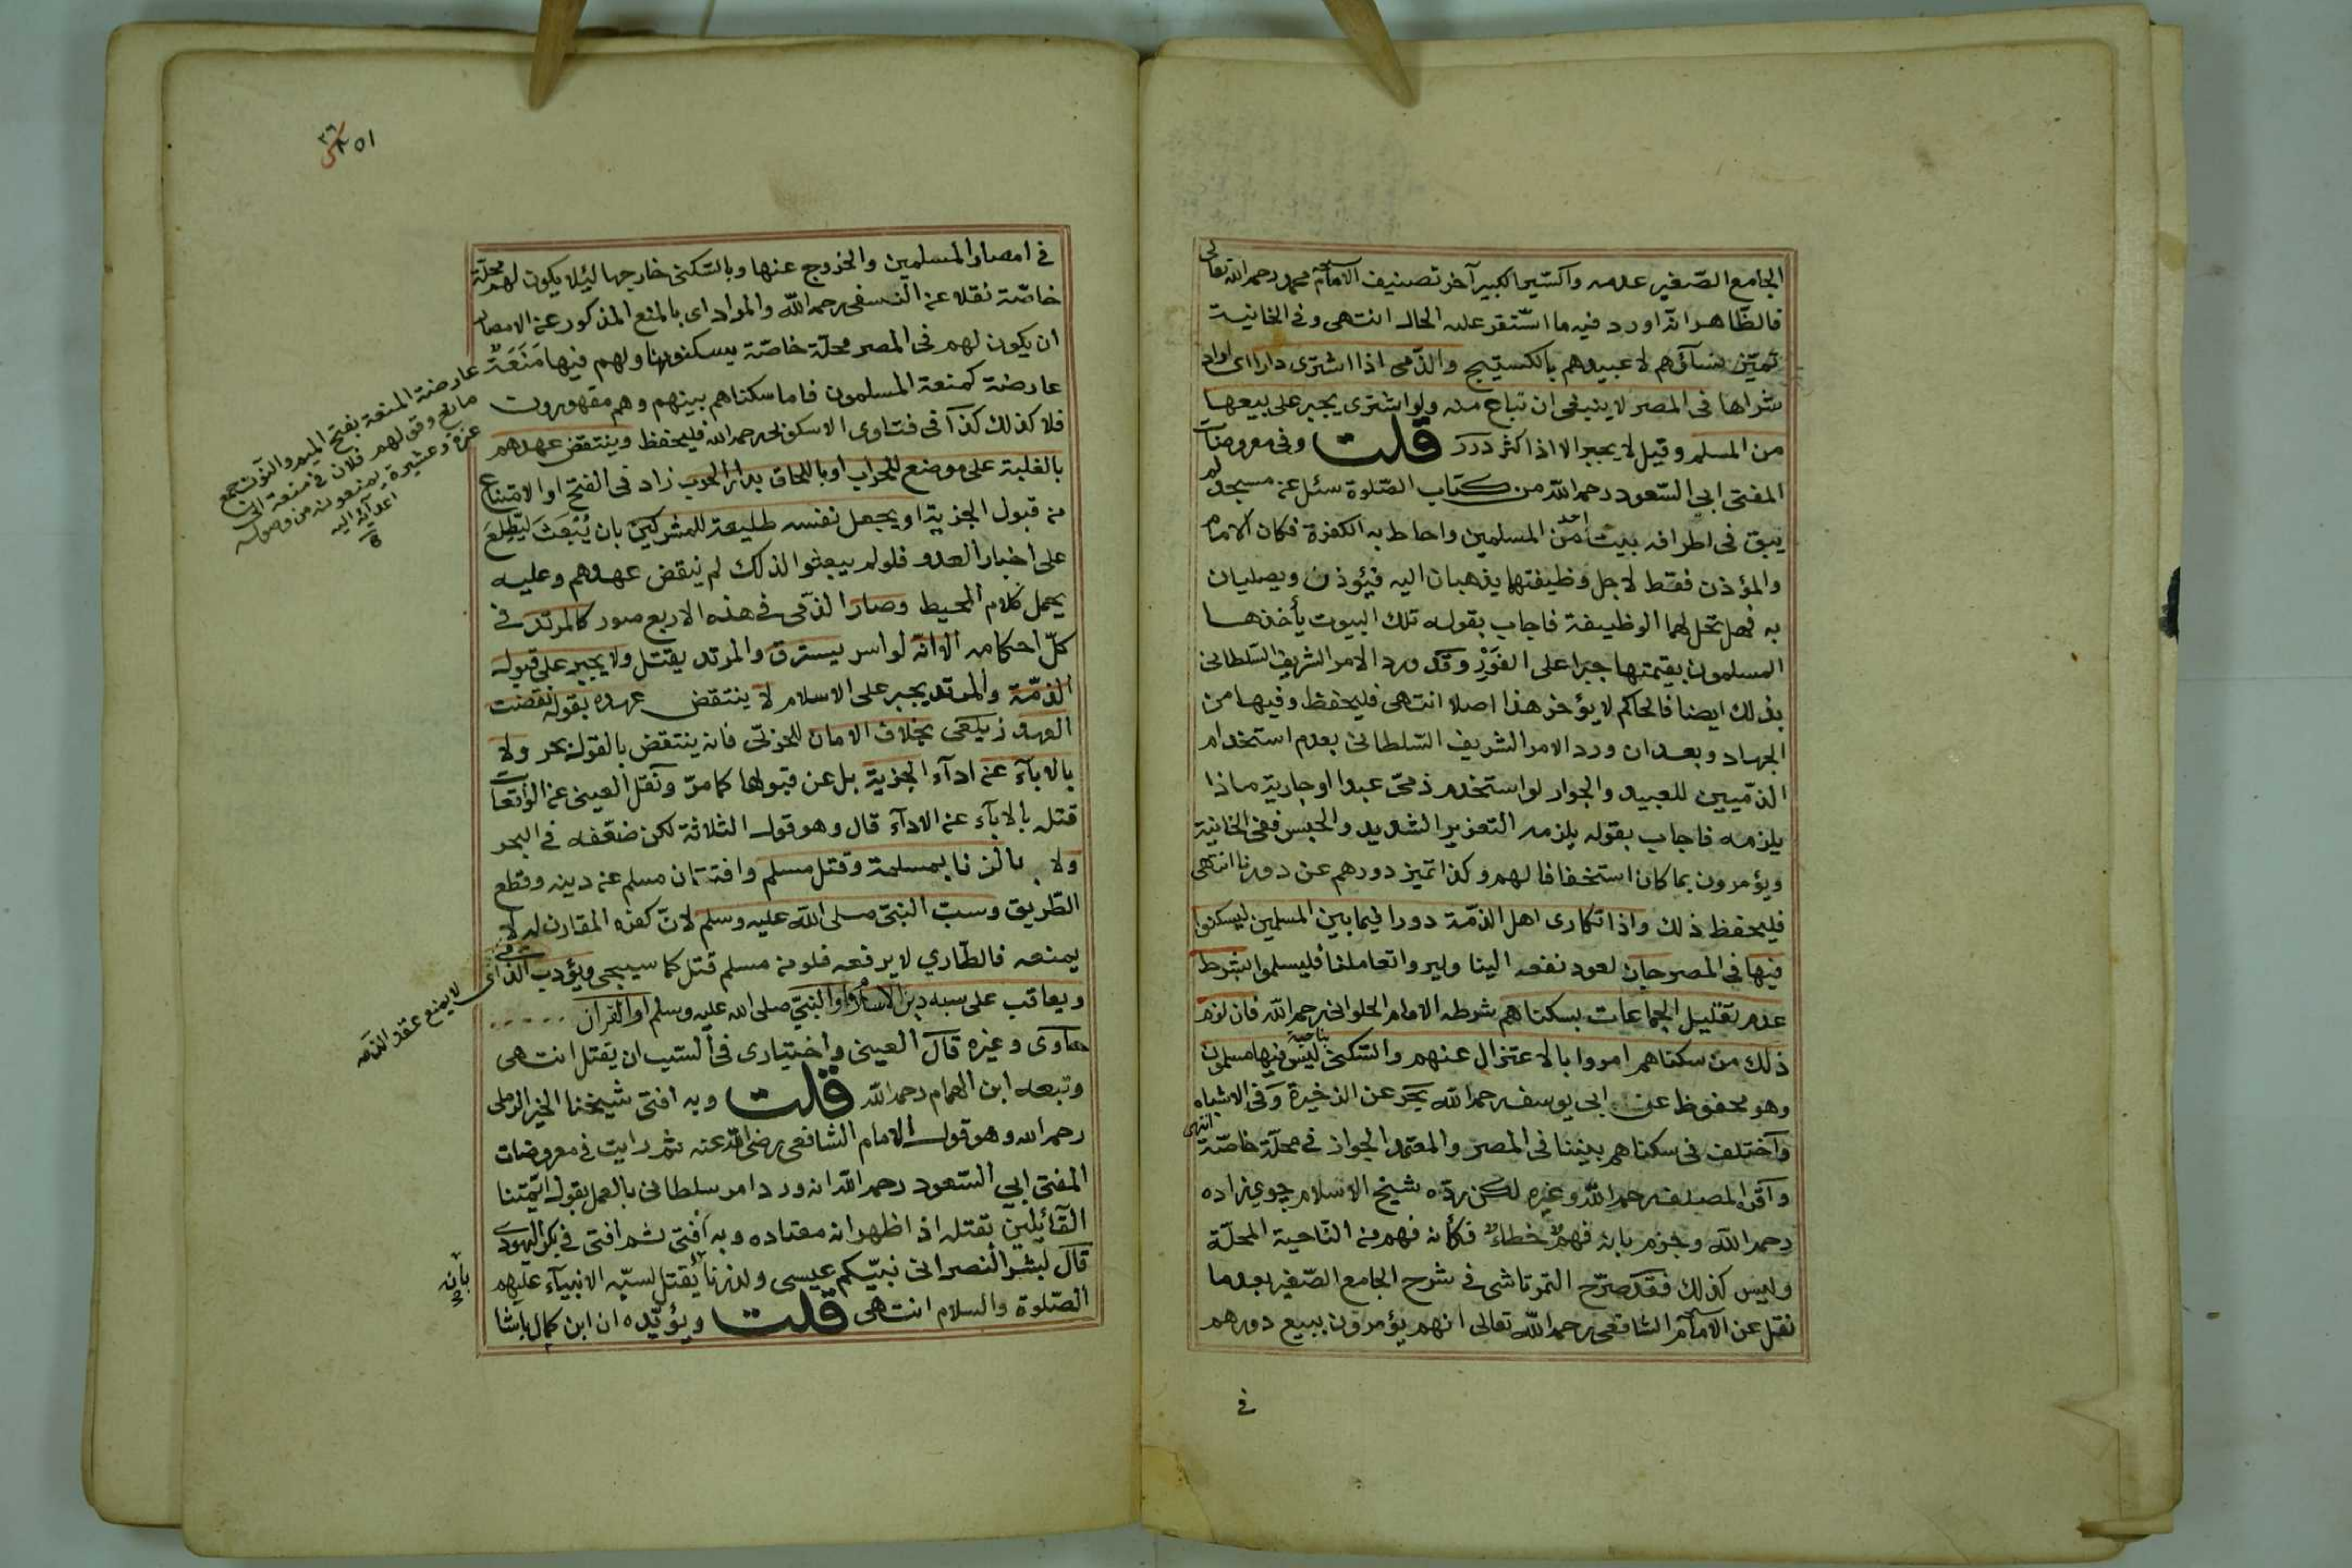 الجامع الصّغير عدمه والسّير الكبير آخر تصنيف الامام محمد رحمه الله تعالى
فالظّاهر انّه اورد فيه ما استّقر عليه الحال انتهى وفى الخانية
تميّز نسآؤهم لا عبيدهم بالكستيج والذّمى اذا اشترى دارا اى اراد
شراها فى المصر لا ينبغى ان تباع منه ولو اشترى يجبر على بيعها
من المسلم وقيل لا يجبر الا اذا كثر درر قلت وفى معروضات
المفتى ابى السّعود رحمه الله من كتاب الصّلوة سئل عن مسجد لم
يبق فى اطرافه بيت احد من المسلمين واحاط به الكفرة فكان الامام
والمؤذن فقط لاجل وظيفتهما يذهبان اليه فيؤذن ويصليان
به فهل تحل لهما الوظيفة فاجاب بقوله تلك البيوت يأخذها
المسلمون بقيمتها جبرا على الفَوْر وقد ورد الامر الشريف السّلطانى
بذلك ايضا فالحاكم لا يؤخر هذا اصلا انتهى فليحفظ وفيها من
الجهاد وبعد ان ورد الامر الشريف السّلطانى بعدم استخدام
الذمّيين للعبيد والجوار لو استخدم ذمىّ عبدا او جارية ماذا
يلزمه فاجاب بقوله يلزمه التعزير الشديد والحبس ففى الخانية
ويؤمرون بما كان استخفافا لهم وكذا تميز دورهم عن دورنا انتهى
فليحفظ ذلك واذا تكارى اهل الذمّة دورا فيما بين المسلمين ليسكنوا
فيها فى المصر جان لعود نفعه الينا وليروا تعاملنا فليسلموا بشرط
عدم تقليل الجماعات بسكناهم شرطه الامام الحلوانى رحمه الله فان لزم
ذلك من سكناهم امروا بالاعتزال عنهم والسّكنى بناحية ليس فيها مسلمون
وهو محفوظ عن ابى يوسف رحمه الله بحر عن الذخيرة وفى الاشباه
واختلف فى سكناهم بيننا فى المصر والمعتمد الجواز فى محلّة خاصّة انتهى
واقرّه المصنف رحمه الله وغيره لكن ردّه شيخ الاسلام جوى زاده
رحمه الله وجزم بانه فهمٌ خطاءٌ فكأنه فهم من النّاحية المحلّة
وليس كذلك فقد صرّح التمرتاشى فى شرح الجامع الصّغير بعد ما
نقل عن الامام الشافعى رحمه الله تعالى انهم يؤمرون ببيع دورهم
فى
٥١
٣٦
فى امصار المسلمين والخروج عنها وبالسّكنى خارجها ليئلا يكون لهم محلّة
خاصّة نقلا عن النسفى رحمه الله والمراد اى بالمنع المذكور عن الامصار
ان يكون لهم فى المصر محلّة خاصّة يسكنونها ولهم فيها مَنَعَةٌ
عارضة كمنعة المسلمون فاما سكناهم بينهم وهم مقهورون
فلا كذلك كذا فى فتاوى الاسكوبى رحمه الله فليحفظ وينتقض عهدهم
بالغلبة على موضع للحراب او باللحاق بدار الحرب زاد فى الفتح او الامتناع
من قبول الجزية او يجعل نفسه طليعة للمشركين بان يُبْعَثَ ليَطَّلِعَ
على اخبار العدو فلو لم يبعثوا لذلك لم ينقض عهدهم وعليه
يحمل كلام المحيط وصار الذمى فى هذه الاربع صور كالمرتد فى
كلّ احكامه الا انّه لو اسر يسترق والمرتد يقتل ولا يجبر على قبوله
الذمّة والمرتد يجبر على الاسلام لا ينتقض عهده بقوله نقضت
العهد زيلعى بخلاف الامان للحربىّ فانه ينتقض بالقول بحر ولا
بالابآء عن ادآء الجزية بل عن قبولها كما مرّ ونقل العينى عن الواقعات
قتله بالابآء عن الادآء قال وهو قول الثلاثة لكن ضعّفه فى البحر
ولا بالزنا بمسلمة وقتل مسلم وافتتان مسلم عن دينه وقطع
الطّريق وسبّ النبىّ صلى الله عليه وسلم لانّ كفره المقارن له لا
يمنعه فالطّارى لا يرفعه فلو من مسلم قتل كما سيجى ويؤدب الذمى
ويعاقب على سبه دين الاسلام او النبىّ صلى الله عليه وسلم او القرآن
حاوى وغيره قال العينى واختيارى فى السّب ان يقتل انتهى
وتبعه ابن الهمام رحمه الله قلت وبه افتى شيخنا الخير الرملى
رحمه الله وهو قول الامام الشافعى رضى الله عنه ثم رايت فى معروضات
المفتى ابى السّعود رحمه الله انه ورد امر سلطانى بالعمل بقول ائمّتنا
القآئلين بقتله اذ اظهر انه معتاده وبه افتى ثم افتى فى بكر اليهودى
قال لبشر النصرانى نبيّكم عيسى ولد زنا يُقتل لسبّه الانبيآء عليهم
الصّلوة والسلام انتهى قلت ويؤيّده ان ابن كمال باشا
عارضة المنعة بفتح الميم والنّون جمع
مانع وقولهم فلان فى منعة اى
عزة وعشيرة يمنعونه من وصول
اعدآئه اليه
لا يمنع عقد الذمه
بانه